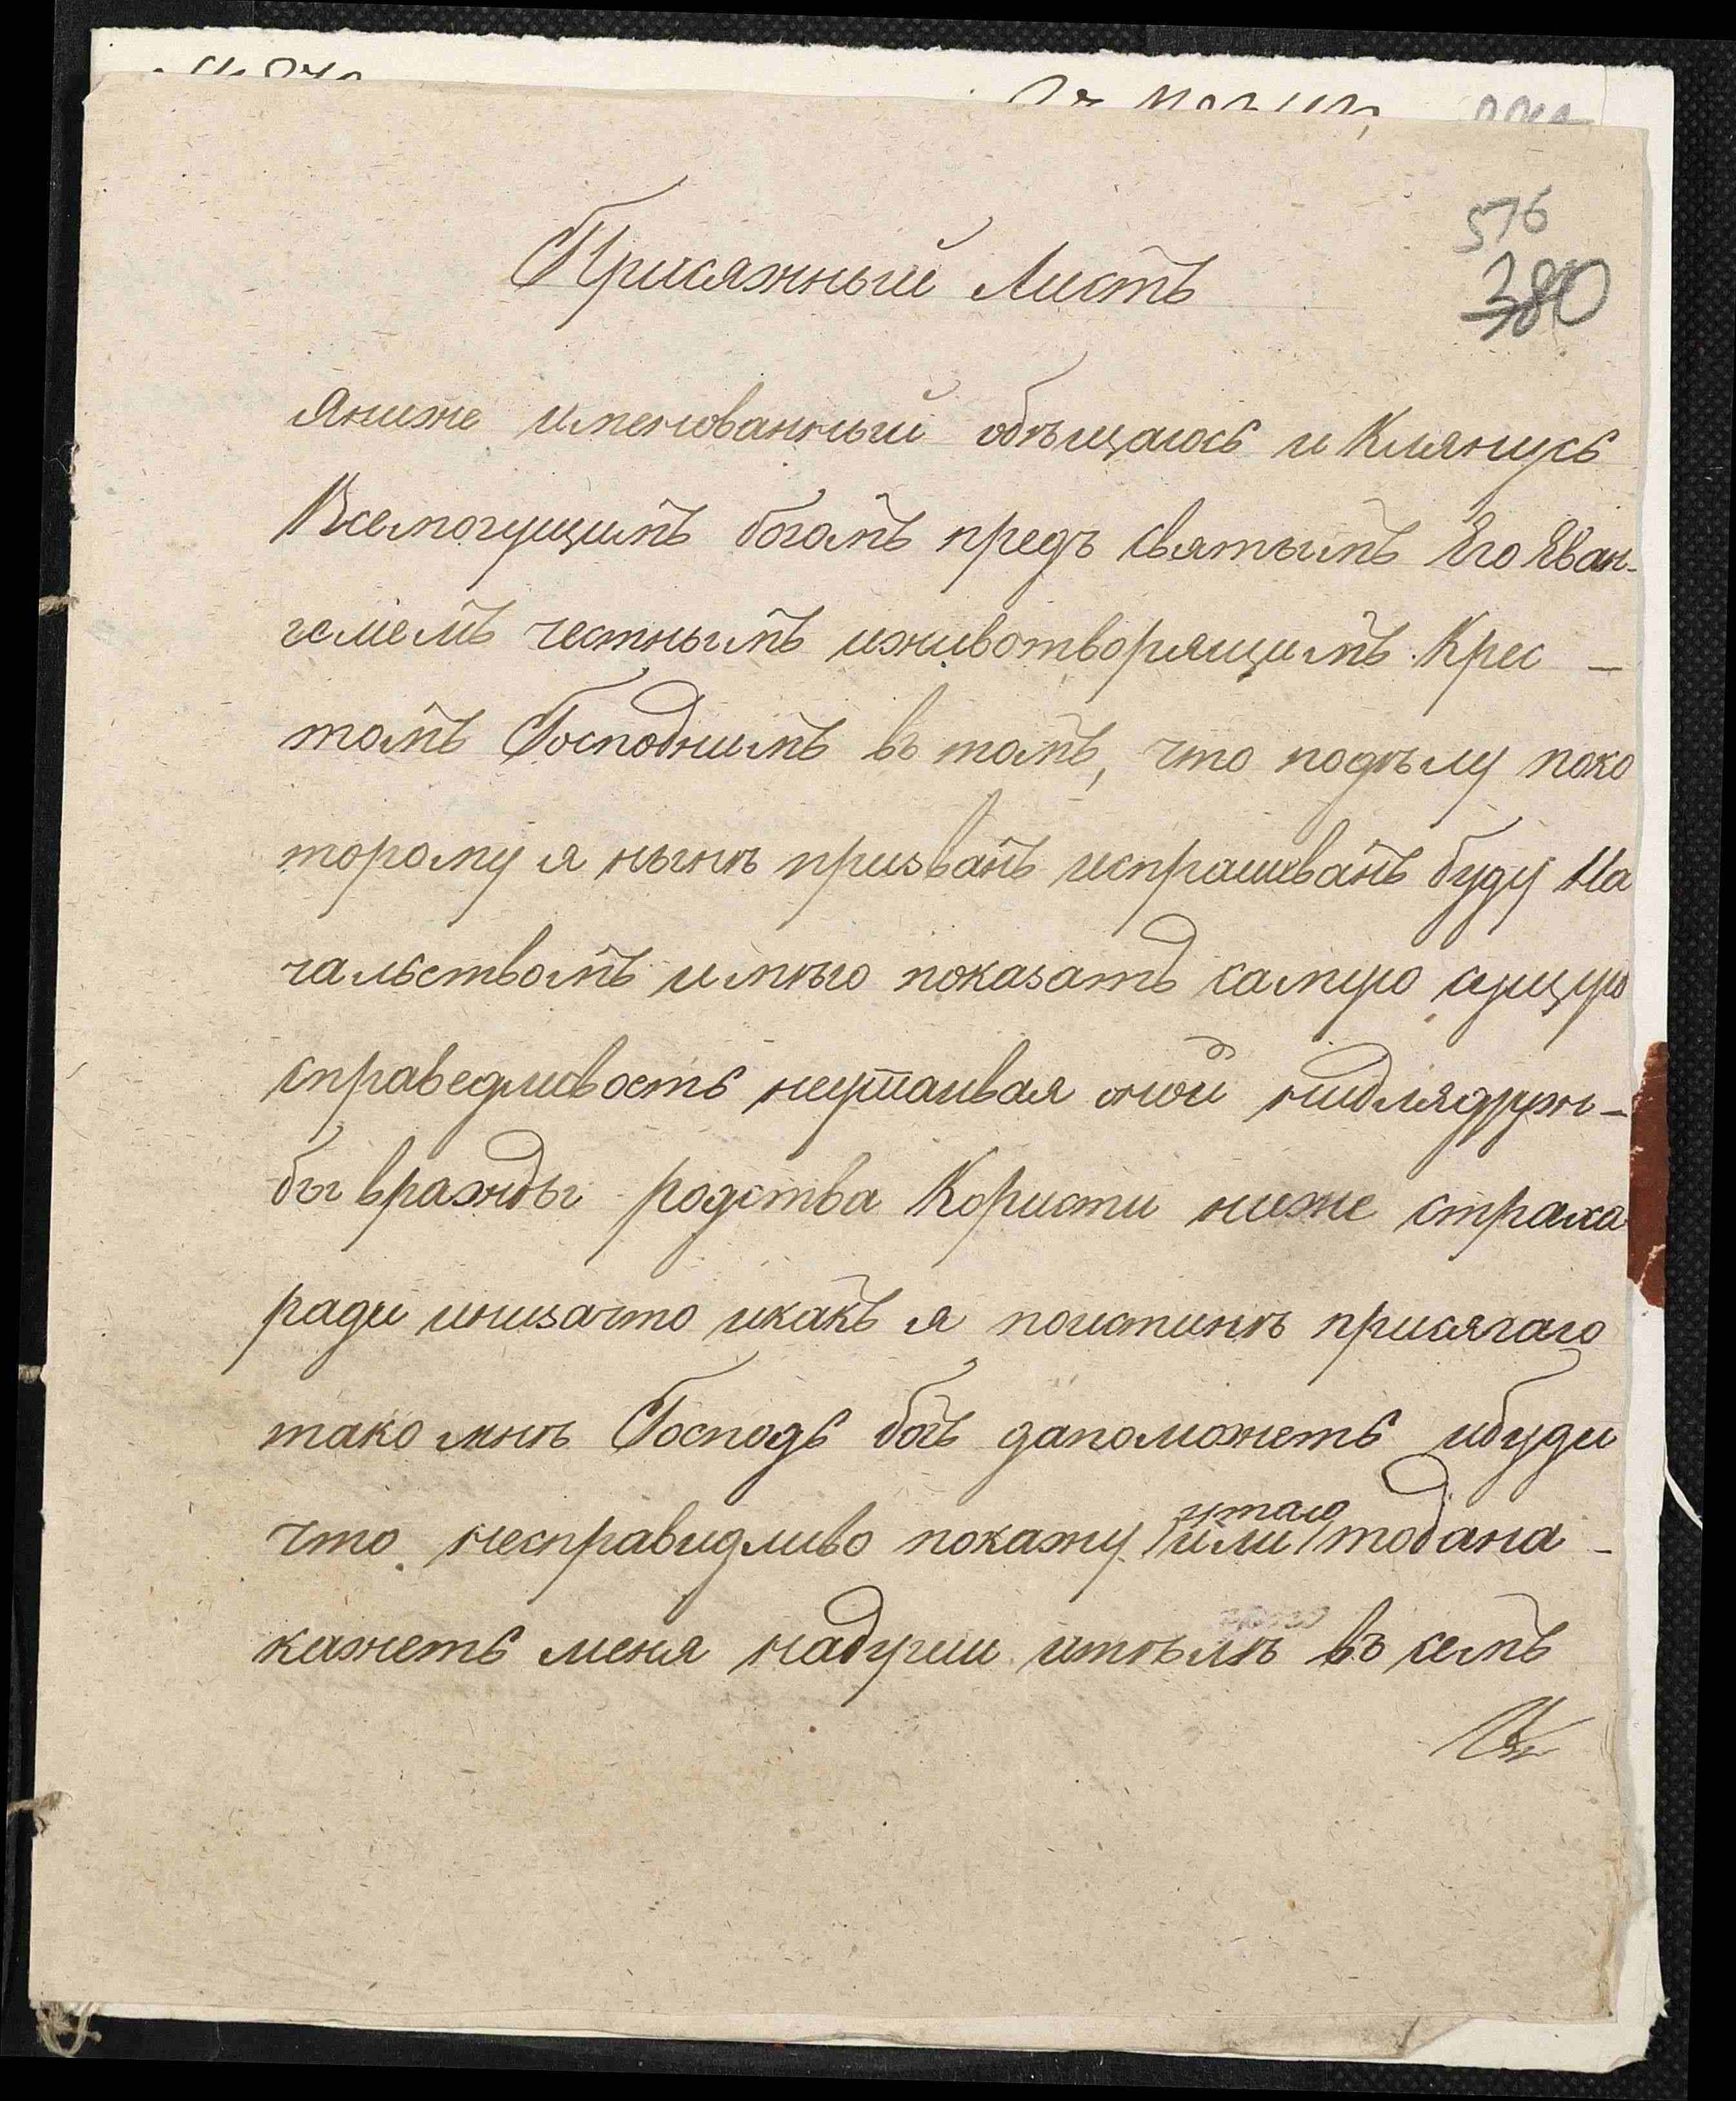 576
380
Присяжный Листъ
Яниже именованный обѣщаюсь и Клянусь
Всемогущимъ богомъ предъ святымъ Его Еван-
гелиемъ честнымъ иживотворящимъ Крес -
томъ Господнимъ въ томъ, что подѣлу поко
торому я нынѣ призванъ испрашиванъ буду На
чальствомъ имѣю показать самую сущую
справедливость неутаивая оной нидлядруж-
бы вражды родства Користи ниже страха
ради инизачто икакъ я поистинѣ присягаю
тако мнѣ Господь богъ дапоможеть ибуди
утаю
что несправидливо покажу или тодана -
кажеть меня надуши итѣлѣ въ семъ